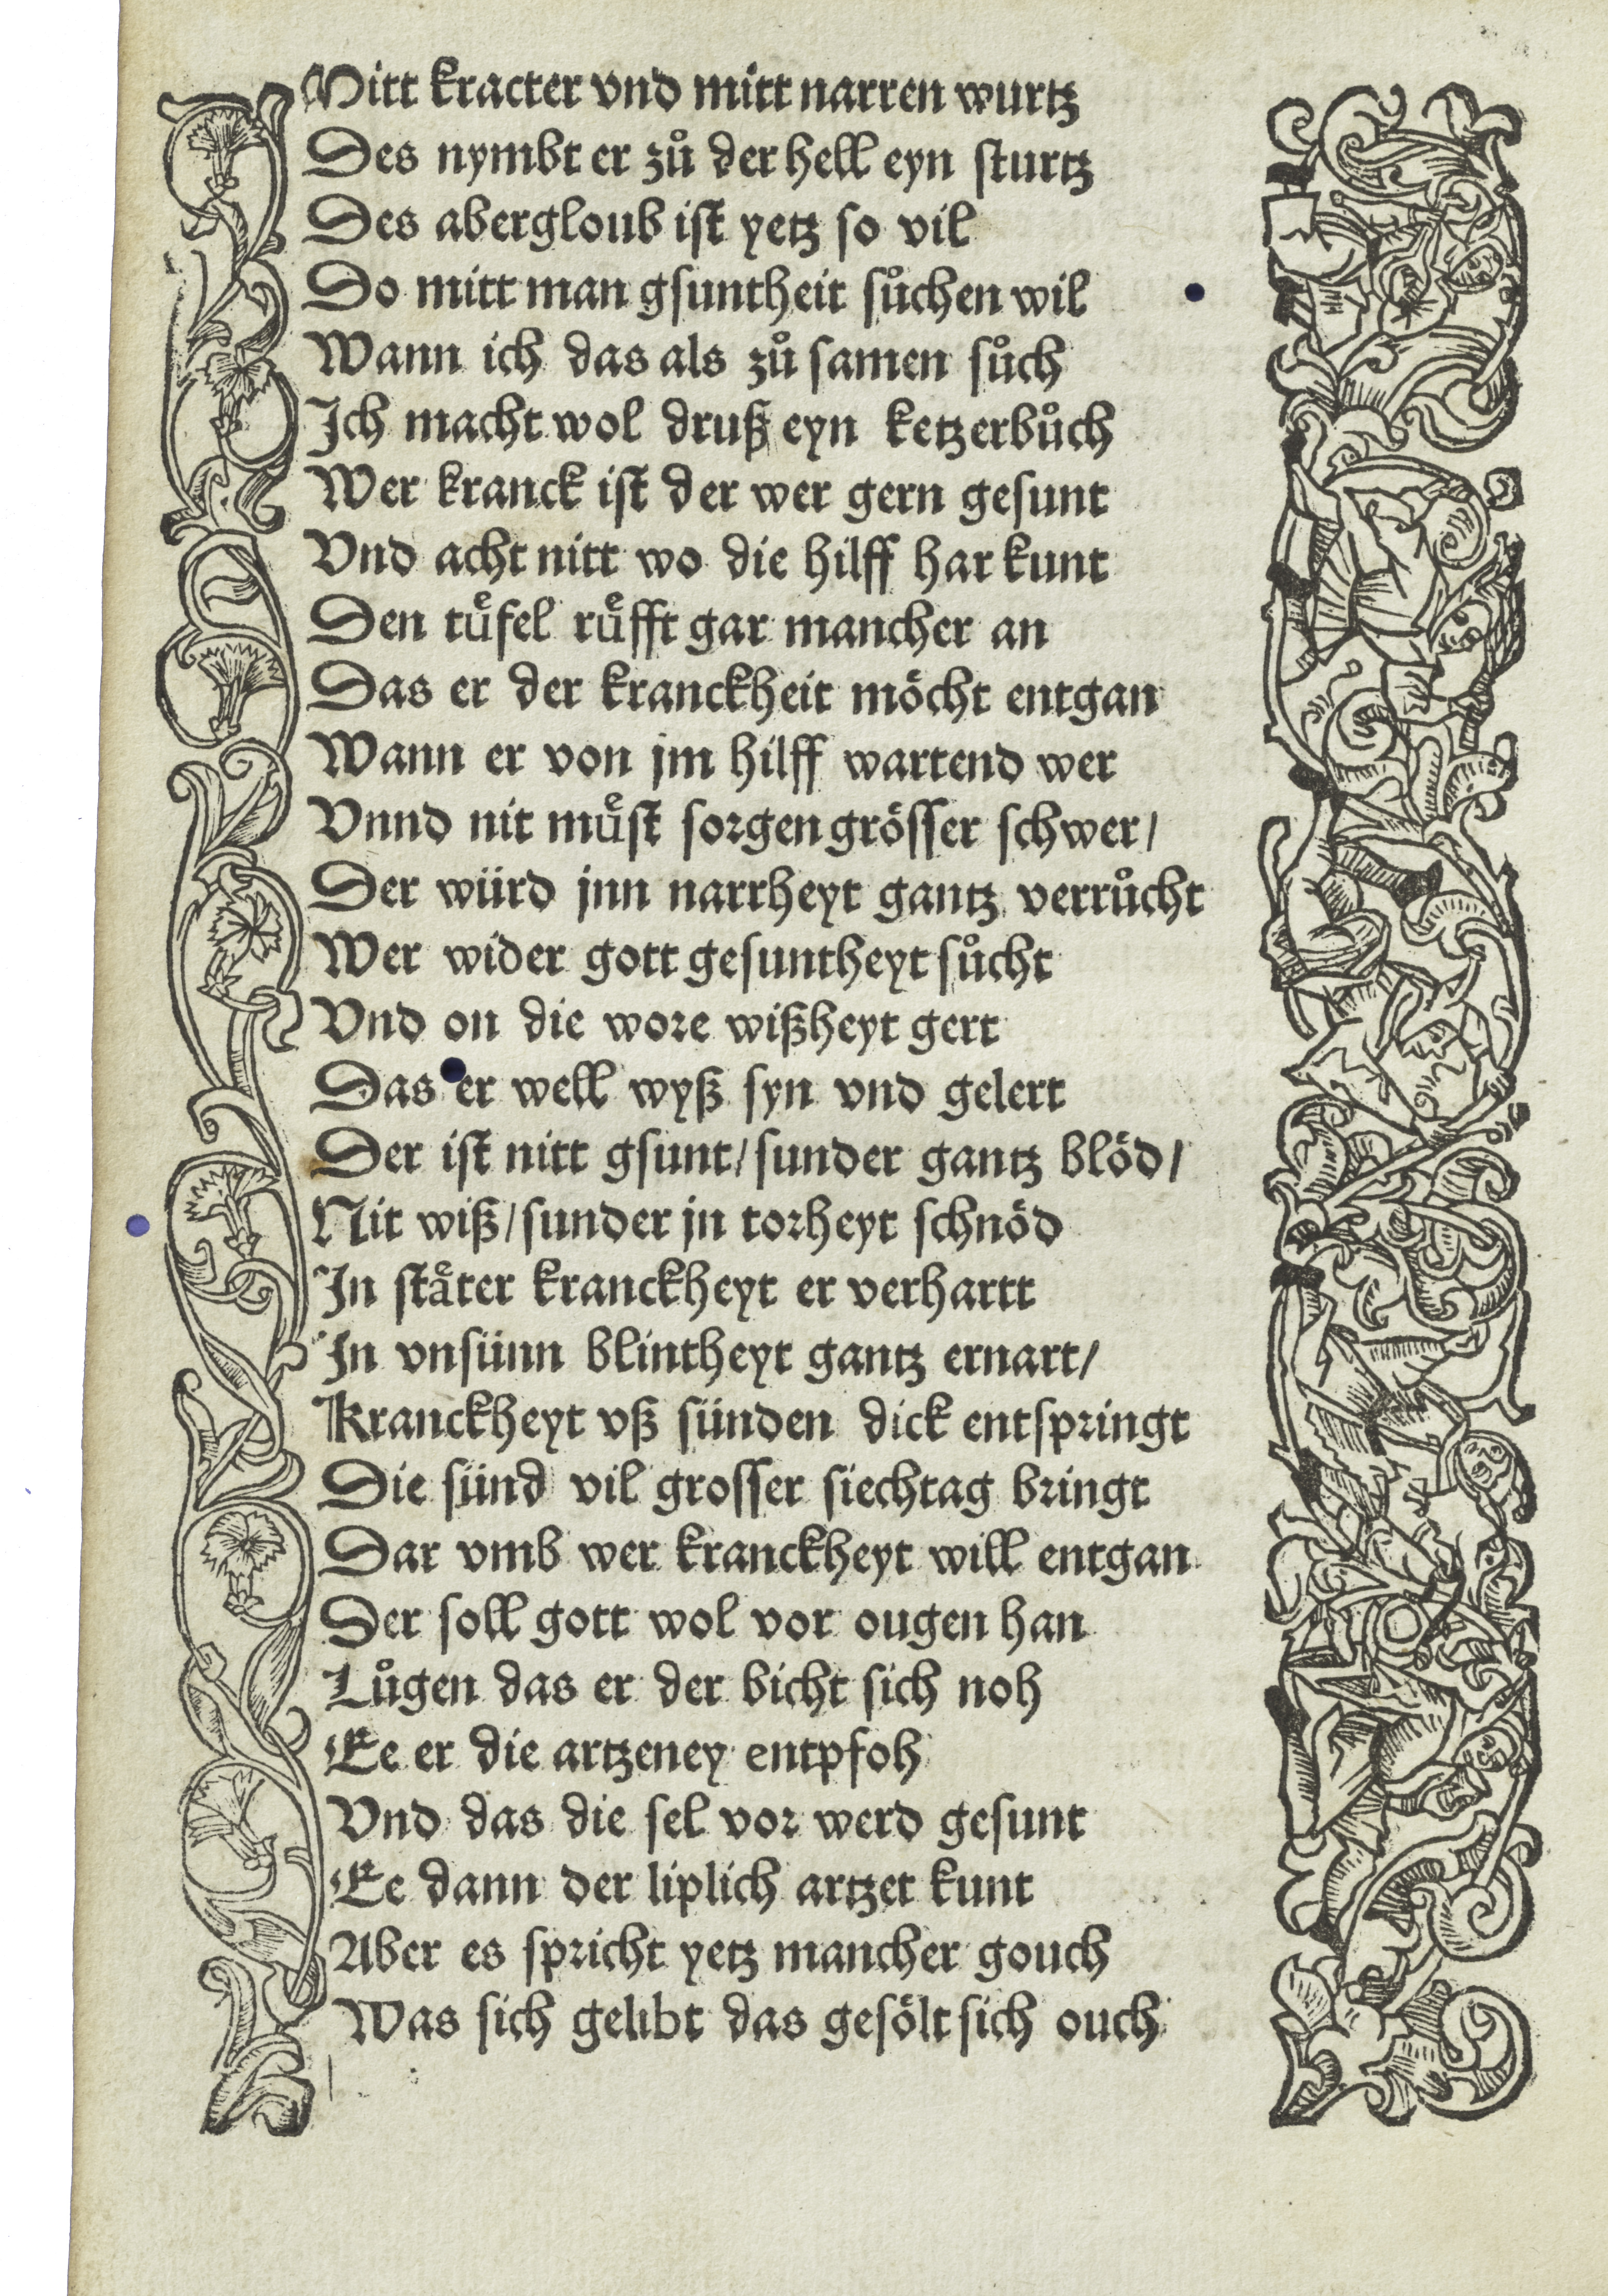 Mitt kracter vnd mitt narren wurtz
Des nymbt er zuͦ der hell eyn sturtz
Des abergloub ist yetz so vil
Do mitt man gsuntheit suͦchen wil
Wann ich das als zuͦ samen suͦch
Ich macht wol druß eyn ketzerbuͦch
Wer kranck ist der wer gern gesunt
Vnd acht nitt wo die hilff har kunt
Den tuͤfel ruͤfft gar mancher an
Das er der kranckheit möcht entgan
Wann er von jm hilff wartend wer
Vnnd nit muͤst sorgen grösser schwer/
Der würd jnn narrheyt gantz verruͦcht
Wer wider gott gesuntheyt suͦcht
Vnd on die wore wißheyt gert
Das er well wyß syn vnd gelert
Der ist nitt gsunt/ sunder gantz blöd/
Nit wiß/ sunder jn torheyt schnöd
In staͤter kranckheyt er verhartt
In vnsünn blintheyt gantz ernart/
Kranckheyt vß sünden dick entspringt
Die sünd vil grosser siechtag bringt
Dar vmb wer kranckheyt will entgan
Der soll gott wol vor ougen han
Luͦgen das er der bicht sich noh
Ee er die artzeney entpfoh
Vnd das die sel vor werd gesunt
Ee dann der liplich artzet kunt
Aber es spricht yetz mancher gouch
Was sich gelibt das gesölt sich ouch